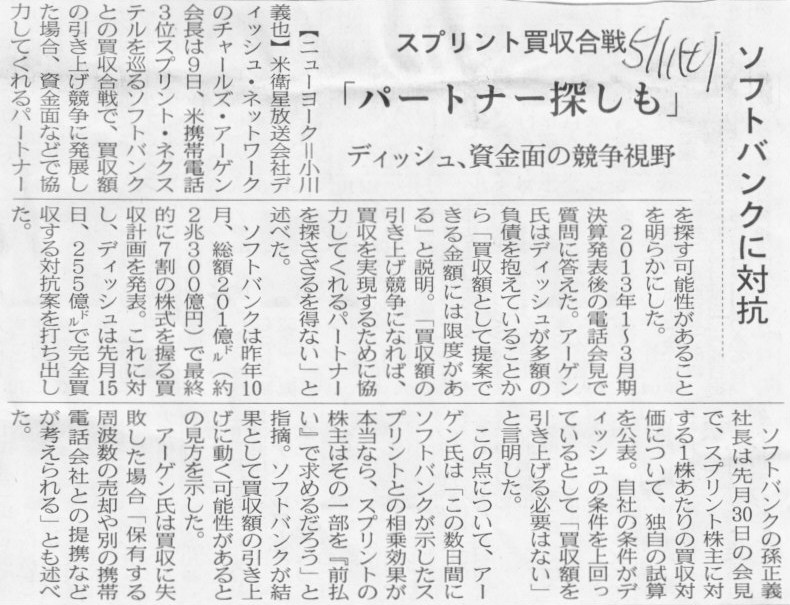 ソフトバンクに対抗
スプリント買収合戦
「パートナー探しも」
ディッシュ、資金面の競争視野
【ニューヨーク=小川
義也】米衛星放送会社デ
ィッシュ・ネットワーク
のチャールズ・アーゲン
会長は9日、米携帯電話
3位スプリント・ネクス
テルを巡るソフトバンク
との買収合戦で、買収額
の引き上げ競争に発展し
た場合、資金面などで協
力してくれるパートナー
を探す可能性があること
を明らかにした。
2013年1~3月期
決算発表後の電話会見で
質問に答えた。アーゲン
氏はディッシュが多額の
負債を抱えていることか
ら「買収額として提案で
きる金額には限度があ
る」と説明。「買収額の
引き上げ競争になれば、
買収を実現するために協
力してくれるパートナー
を探さざるを得ない」と
述べた。
ソフトバンクは昨年10
月、総額201億㌦(約
2兆300億円)で最終
的に7割の株式を握る買
収計画を発表。これに対
し、ディッシュは先月15
日、255億㌦で完全買
収する対抗案を打ち出し
た。
ソフトバンクの孫正義
社長は先月30日の会見
で、スプリント株主に対
する1株あたりの買収対
価について、独自の試算
を公表。自社の条件がデ
ィッシュの条件を上回っ
ているとして「買収額を
引き上げる必要はない」
と言明した。
この点について、アー
ゲン氏は「この数日間に
ソフトバンクが示したス
プリントとの相乗効果が
本当なら、スプリントの
株主はその一部を『前払
い』で求めるだろう」と
指摘。ソフトバンクが結
果として買収額の引き上
げに動く可能性があると
の見方を示した。
アーゲン氏は買収に失
敗した場合「保有する
周波数の売却や別の携帯
電話会社との提携など
が考えられる」とも述べ
た。